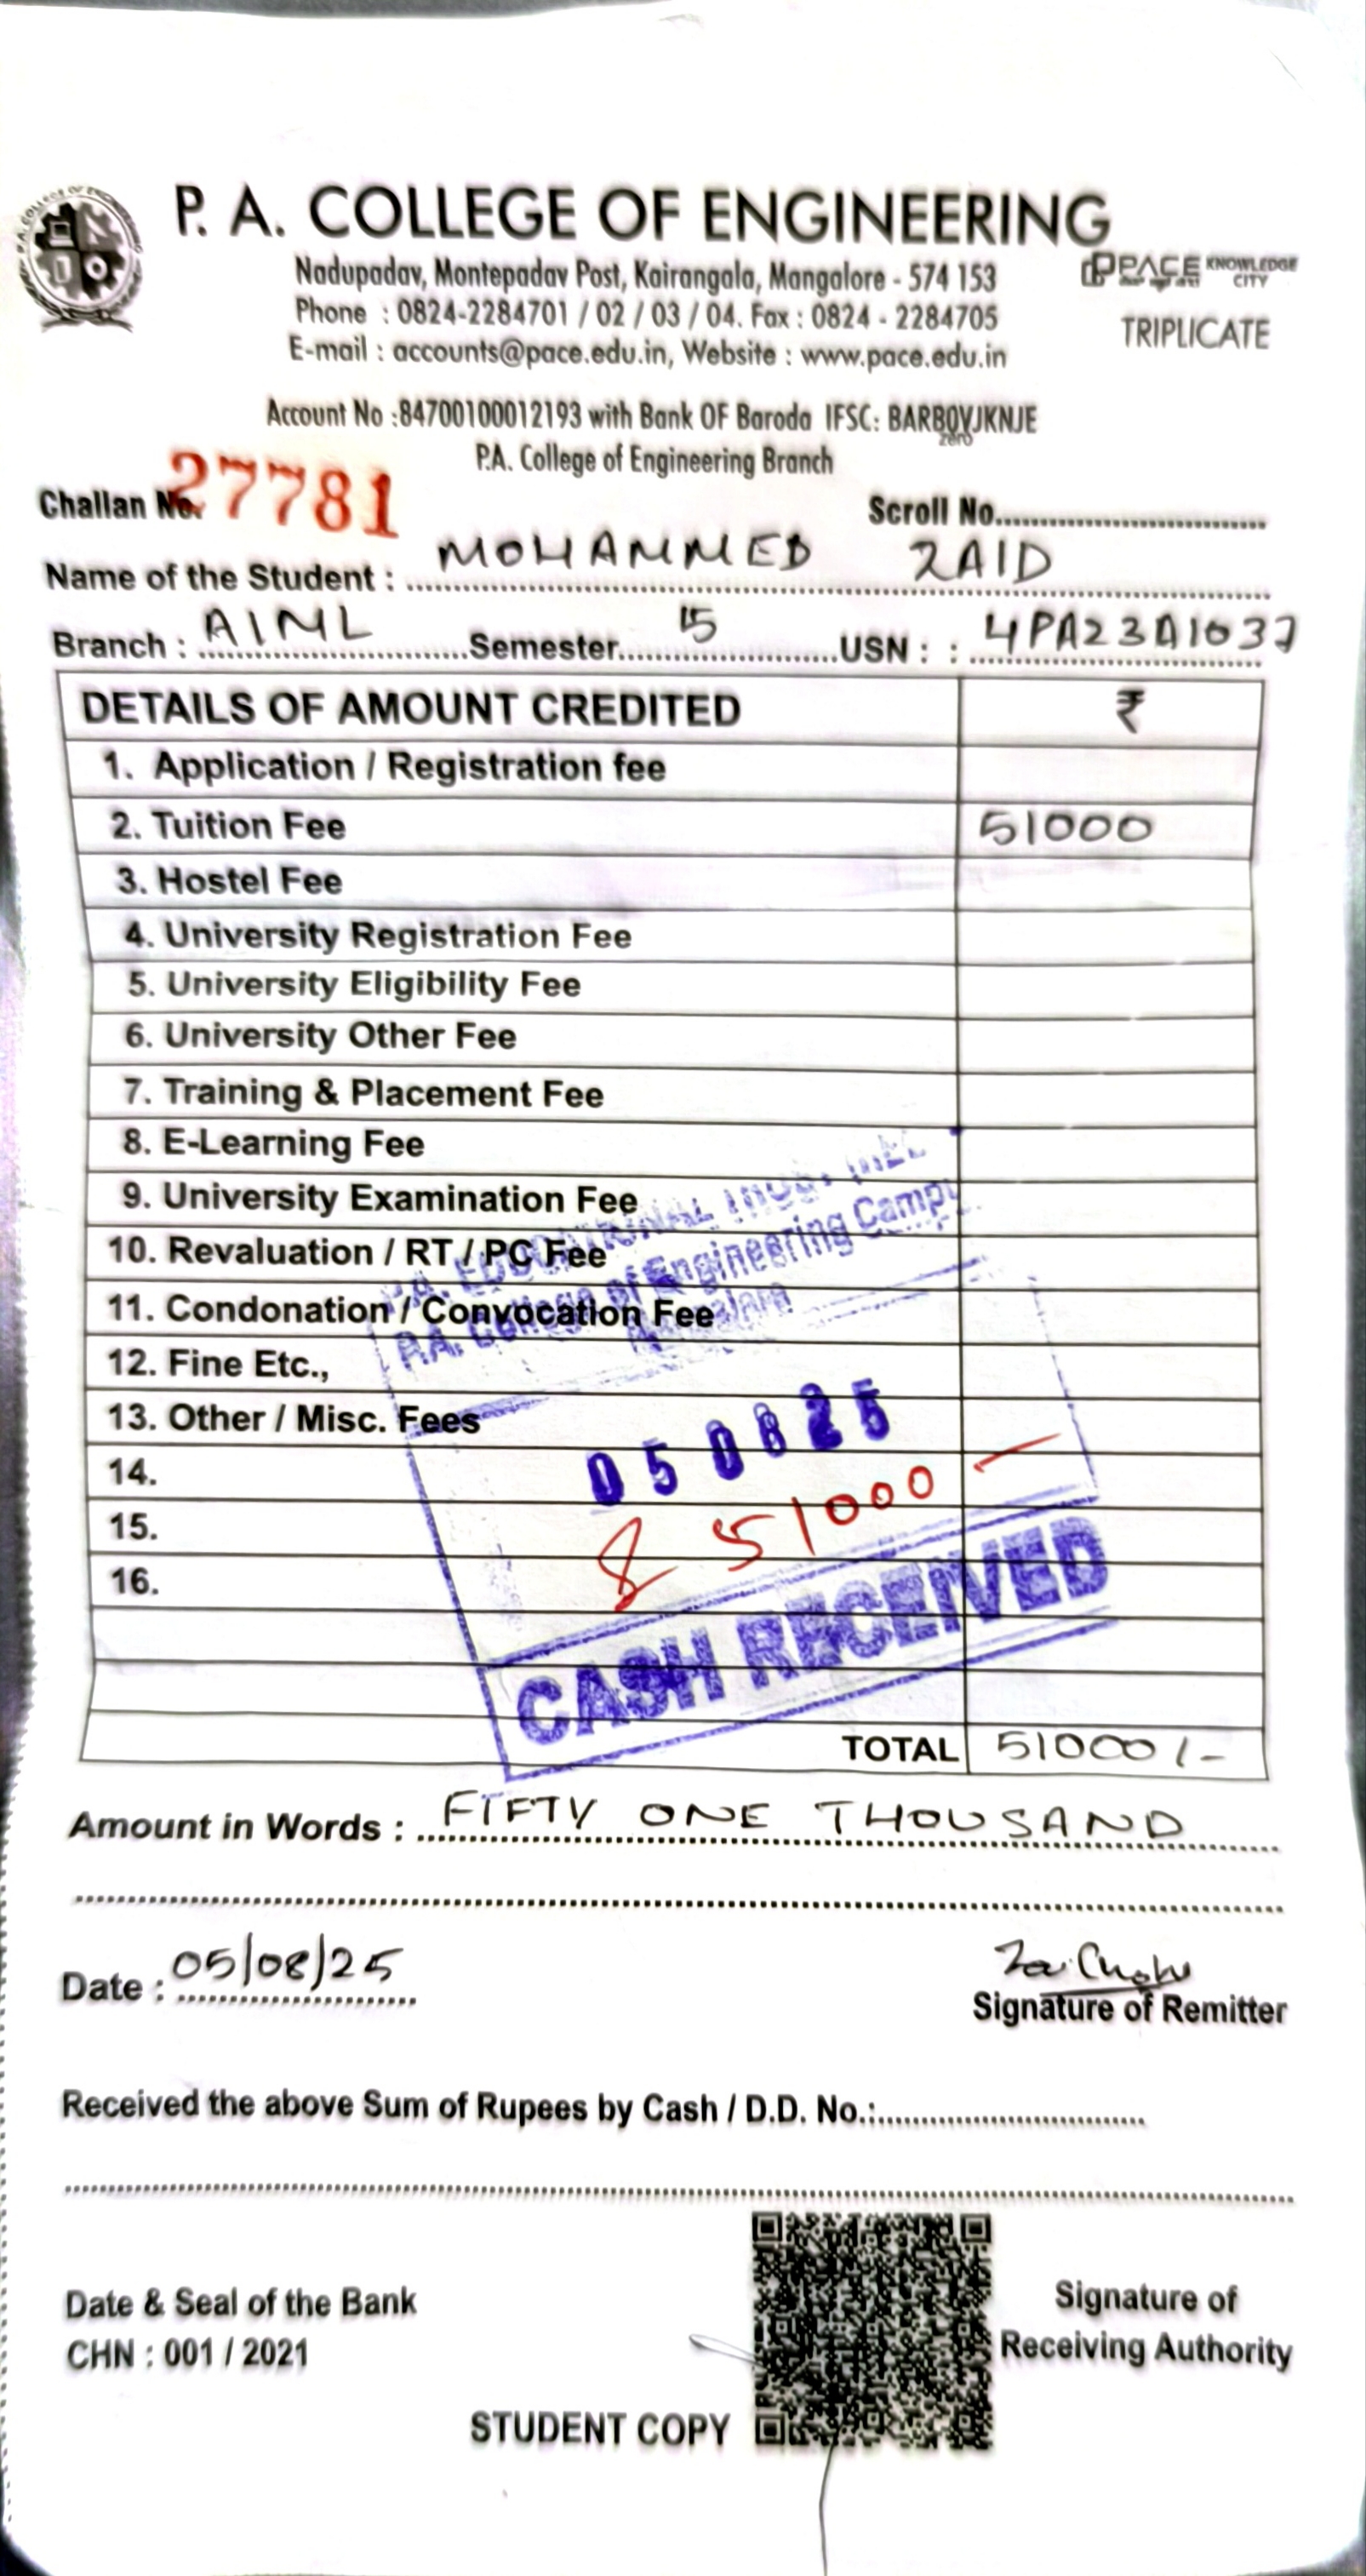 P. A. COLLEGE OF ENGINEERING
Nadupadav, Montepadav Post, Kairangala, Mangalore - 574 153
PACE KNOWLEDGE CITY
Phone : 0824-2284701 / 02 / 03 / 04. Fax : 0824 - 2284705
TRIPLICATE
E-mail : accounts@pace.edu.in, Website : www.pace.edu.in
Account No :84700100012193 with Bank OF Baroda IFSC: BARB0VJKNJE
zero
P.A. College of Engineering Branch
Challan No. 27781
Scroll No.
Name of the Student : MOHAMMED ZAID
Branch : AIML Semester 5 USN : : 4PA23AI037
DETAILS OF AMOUNT CREDITED ₹
1. Application / Registration fee
2. Tuition Fee 51000
3. Hostel Fee
4. University Registration Fee
5. University Eligibility Fee
6. University Other Fee
7. Training & Placement Fee
8. E-Learning Fee
9. University Examination Fee
10. Revaluation / RT / PC Fee
11. Condonation / Convocation Fee
12. Fine Etc.,
13. Other / Misc. Fees
14.
15.
16.
P.A. EDUCATIONAL
P.A. College of Engineering
050825
51000
CASH RECEIVED
TOTAL 51000/-
Amount in Words : FIFTY ONE THOUSAND
Date : 05/08/25
Signature of Remitter
Received the above Sum of Rupees by Cash / D.D. No.:
Date & Seal of the Bank
CHN : 001 / 2021
Signature of
Receiving Authority
STUDENT COPY